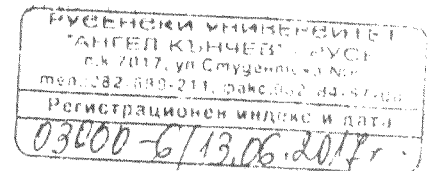 РУСЕНСКИ УНИВЕРСИТЕТ
"АНГЕЛ КЪНЧЕВ" - РУСЕ
п.к. 7017, ул. Студентска
тел.: 082-
Регистрационен индекс и дата
03000-6/13.06.2017г.